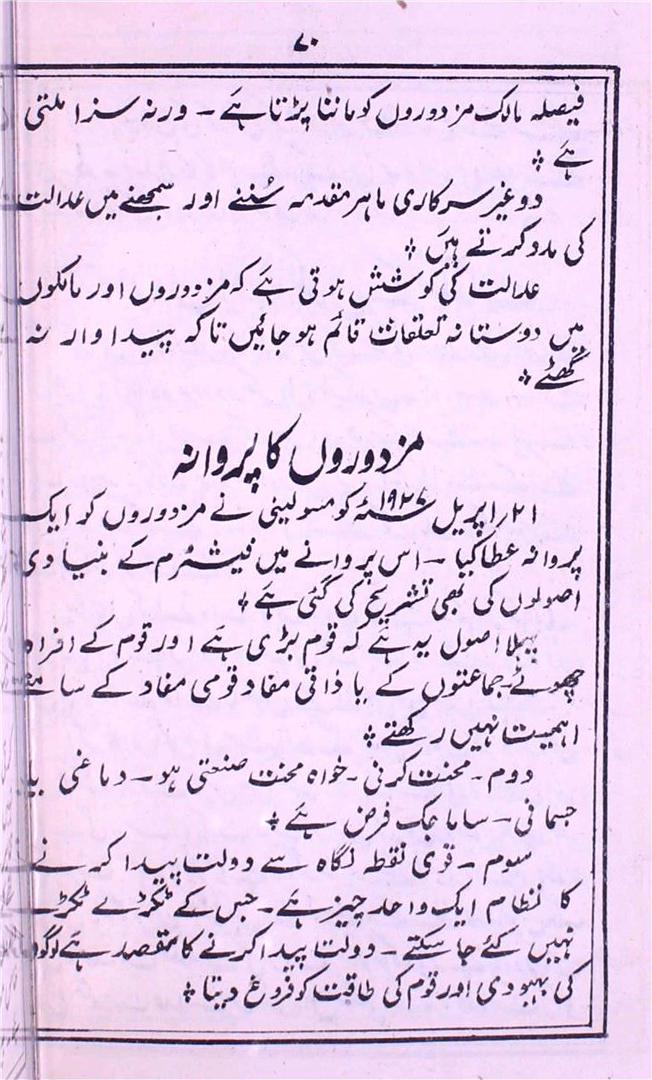 ۷۰
فیصلہ مالک مزدوروں کو ماننا پڑتا ہے ۔ ورنہ سزا ملتی
ہے ٭
دو غیر سرکاری ماہر مقدمہ سُننے اور سمجھنے میں عدالت
کی مدد کرتے ہیں ٭
عدالت کی کوشش ہوتی ہے کہ مزدوروں اور مالکوں
میں دوستانہ تعلقات قائم ہو جائیں تاکہ پیداوار نہ
گھٹے ٭
مزدوروں کا پروانہ
۲۱ اپریل ۱۹۲۷ء کو مسولینی نے مزدوروں کو ایک
پروانہ عطا کیا ۔ اس پروانے میں فیشزم کے بنیادی
اصولوں کی بھی تشریح کی گئی ہے ٭
پہلا اصول یہ ہے کہ قوم بڑی ہے اور قوم کے افراد
چھوٹے جماعتوں کے یا ذاتی مفاد قومی مفاد کے سامنے
اہمیت نہیں رکھتے ٭
دوم ۔ محنت کرنی ۔ خواہ محنت صنعتی ہو ۔ دماغی یا
جسمانی ۔ سماجک فرض ہے ٭
سوم ۔ قومی نقطہ نگاہ سے دولت پیدا کرنے
کا نظام ایک واحد چیز ہے ۔ جس کے ٹکڑے ٹکڑے
نہیں کئے جا سکتے ۔ دولت پیدا کرنے کا مقصد ہے لوگوں
کی بہبودی اور قوم کی طاقت کو فروغ دینا ٭